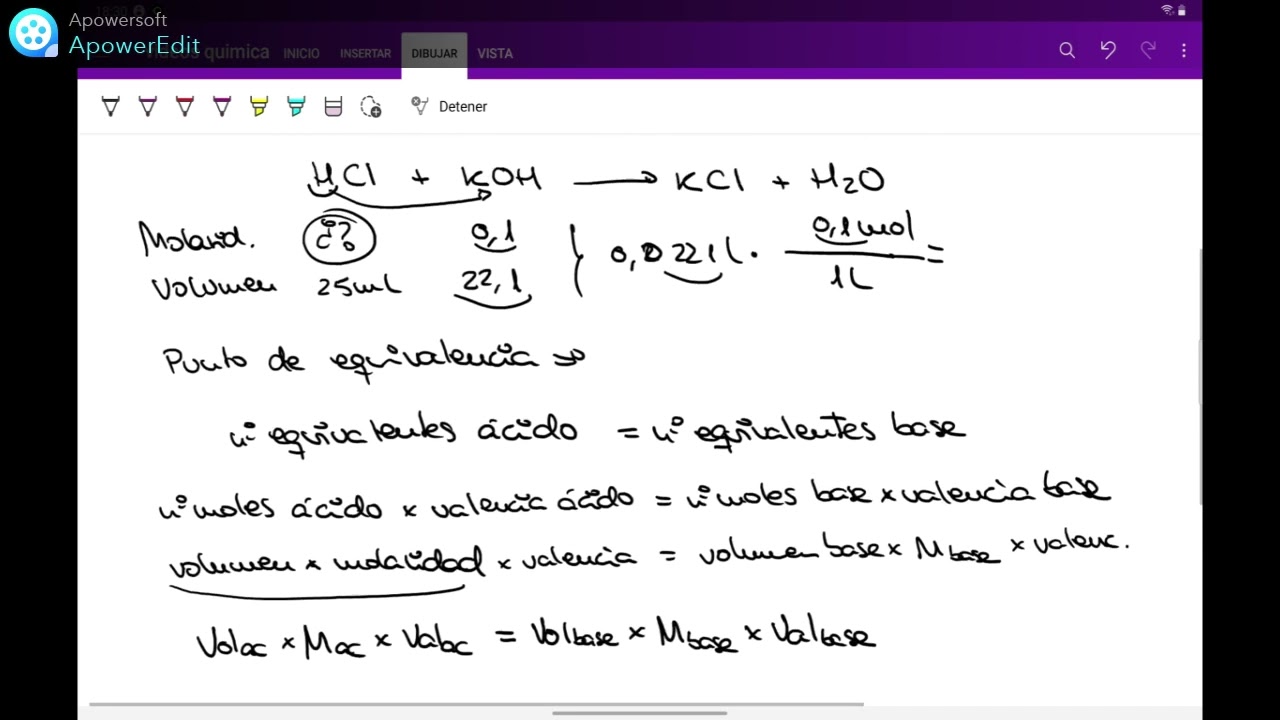 Apowersoft
ApowerEdit
quimica INICIO INSERTAR DIBUJAR VISTA
Detener
HCl + KOH → KCl + H₂O
Molarid. ¿? 0,1 } 0,0221L · 0,1 mol / 1L =
Volumen 25mL 22,1
Punto de equivalencia ⇒
nº equivalentes ácido = nº equivalentes base
nº moles ácido x valencia ácido = nº moles base x valencia base
volumen x molaridad x valencia = volumen base x Mbase x valenc.
Volac x Mac x Valac = Volbase x Mbase x Valbase